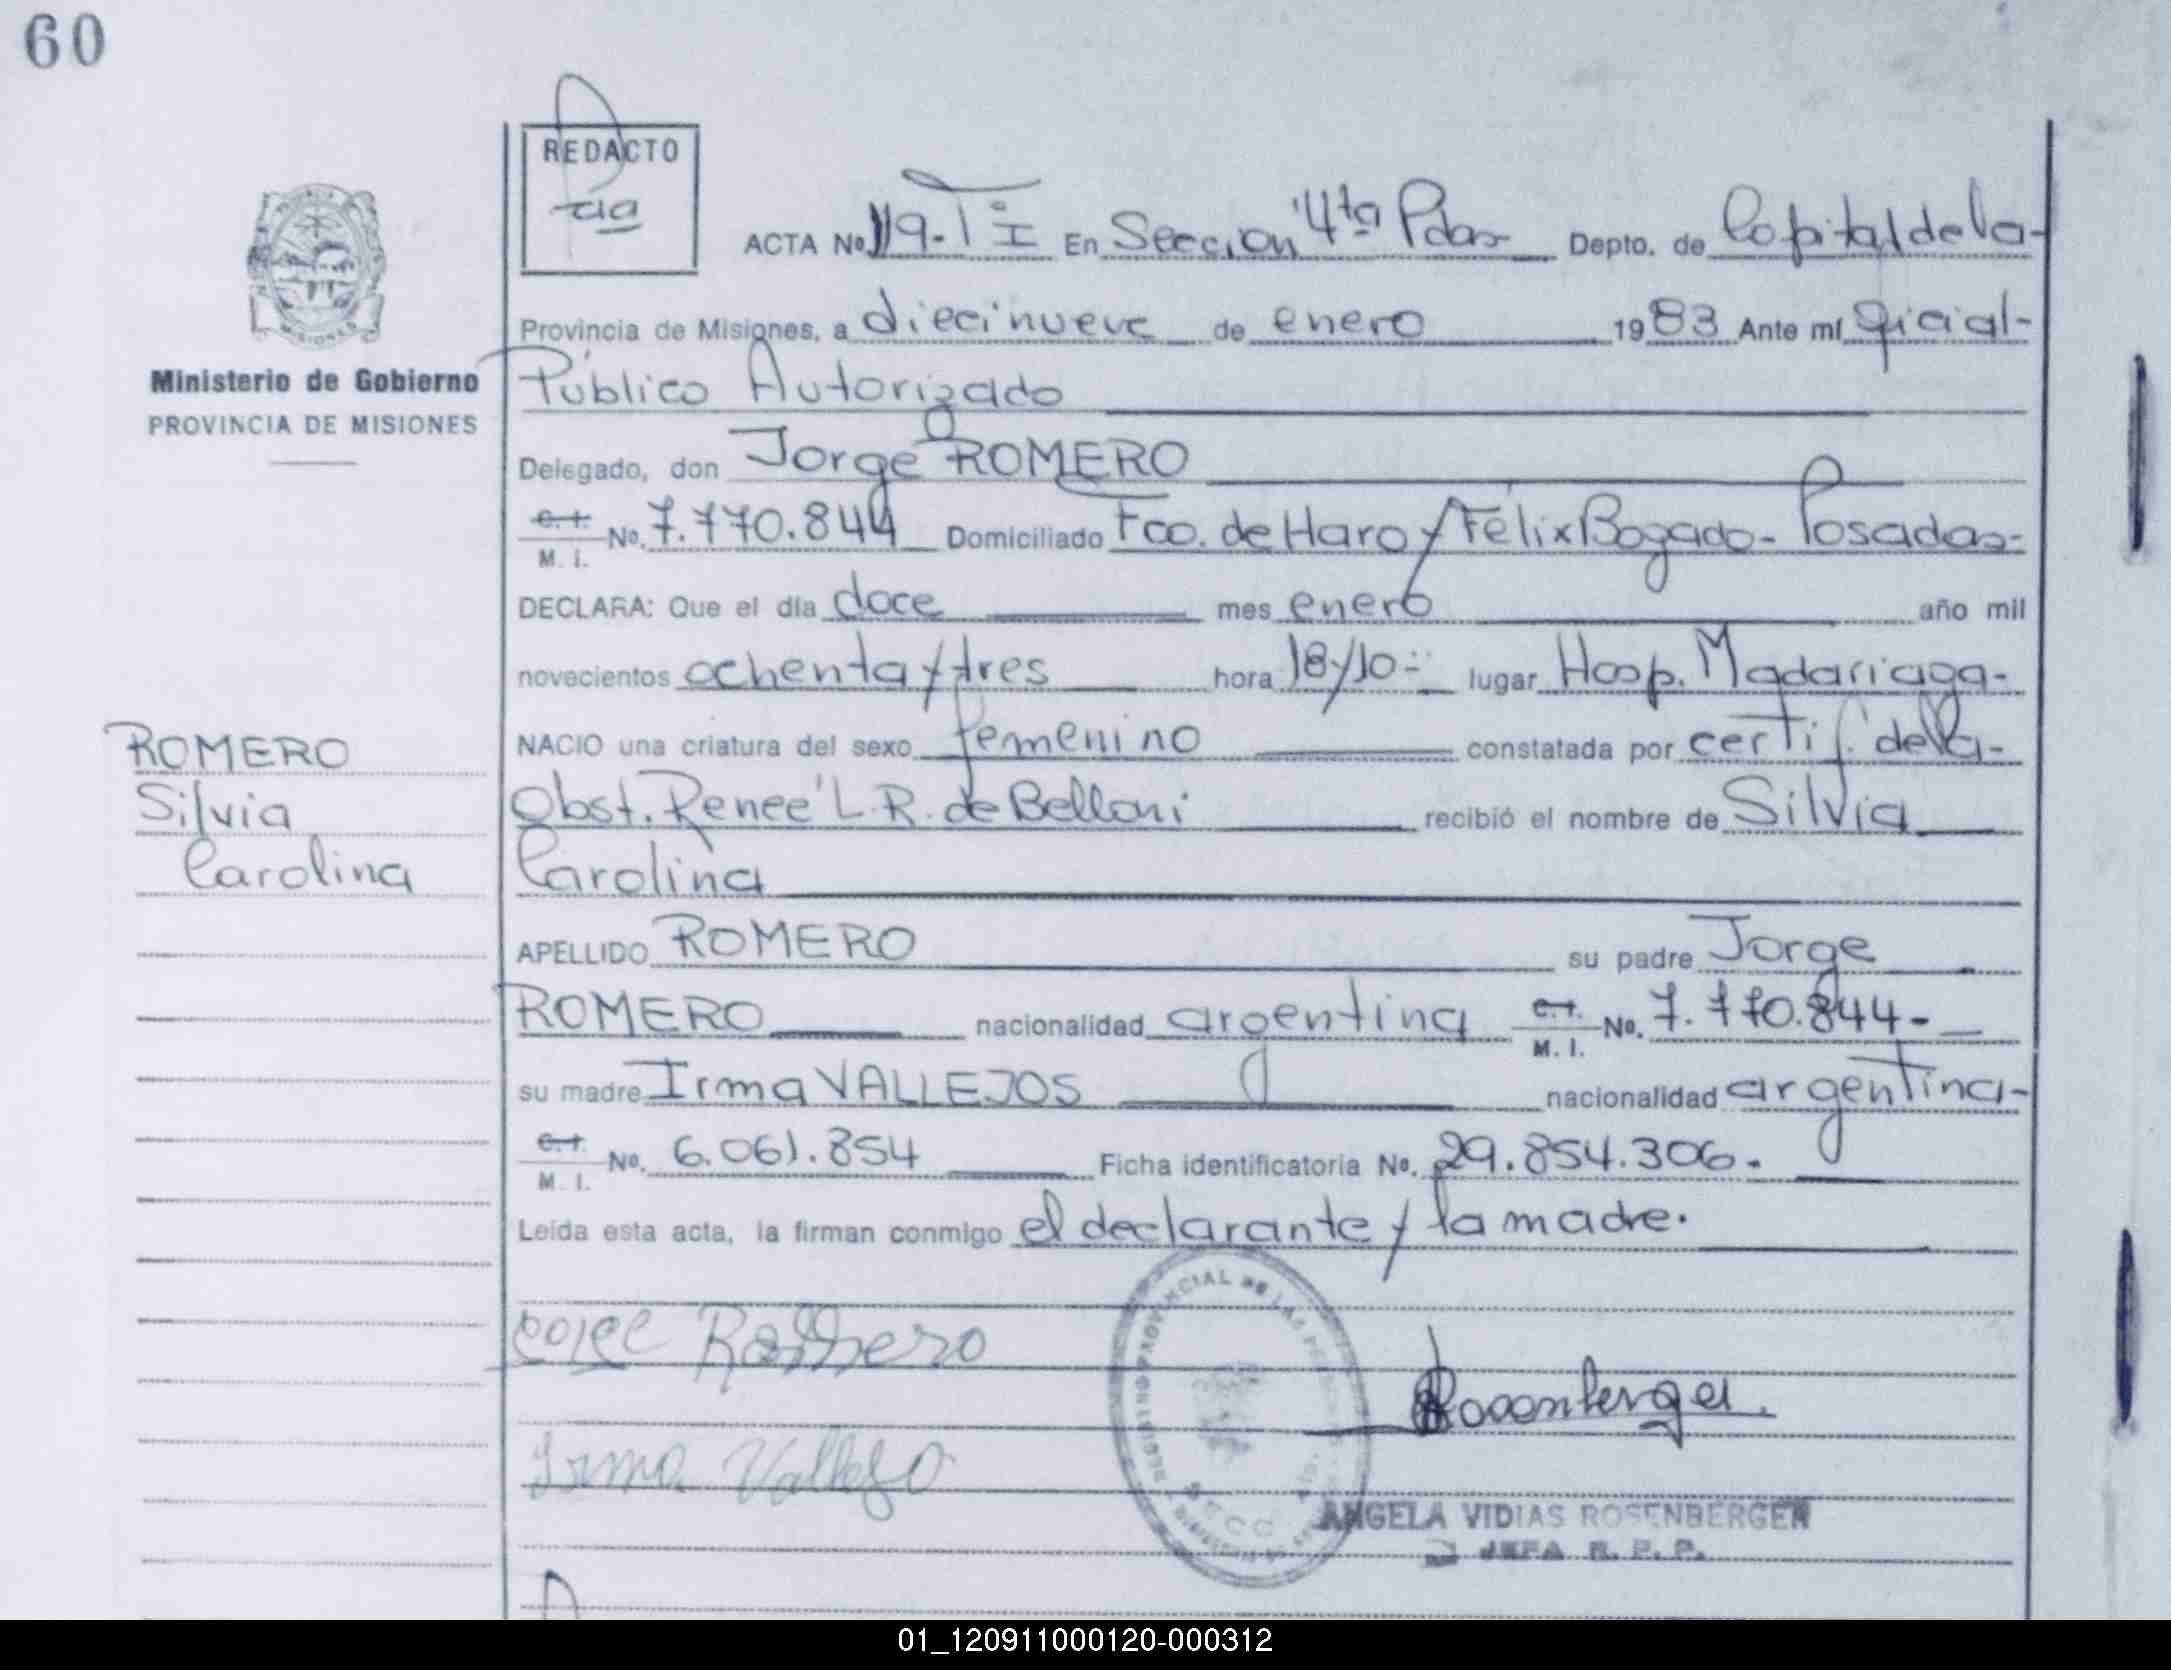 60
REDACTO
ACTA No. 119-T I En Sección 4ta Pdas Depto. de Capital de la-
Provincia de Misiones, a diecinueve de enero 1983 Ante mí oficial-
Ministerio de Gobierno
Público Autorizado
PROVINCIA DE MISIONES
Delegado, don Jorge ROMERO
C. I. M. I. No. 7.770.844 Domiciliado Fco. de Haro y Félix Bogado- Posadas-
DECLARA: Que el día doce mes enero año mil
novecientos ochenta y tres hora 18y10- lugar Hosp. Madariaga-
NACIO una criatura del sexo femenino constatada por certif. de la-
Obst. Renee L. R. de Belloni recibió el nombre de Silvia
Carolina
ROMERO
Silvia
Carolina
APELLIDO ROMERO su padre Jorge
ROMERO nacionalidad argentina C. I. M. I. No. 7.770.844-
su madre Irma VALLEJOS nacionalidad argentina-
C. I. M. I. No. 6.061.854 Ficha identificatoria No. 29.854.306.
Leída esta acta, la firman conmigo el declarante y la madre.
Romero
Rosenberger
Irma Vallejo
REGISTRO PROVINCIAL DE LAS
ANGELA VIDIAS ROSENBERGER
JEFA R. P. P.
MISIONES
01_120911000120-000312